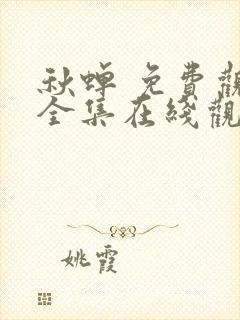 秋蝉 免費觀
全集在綫觀
姚霞